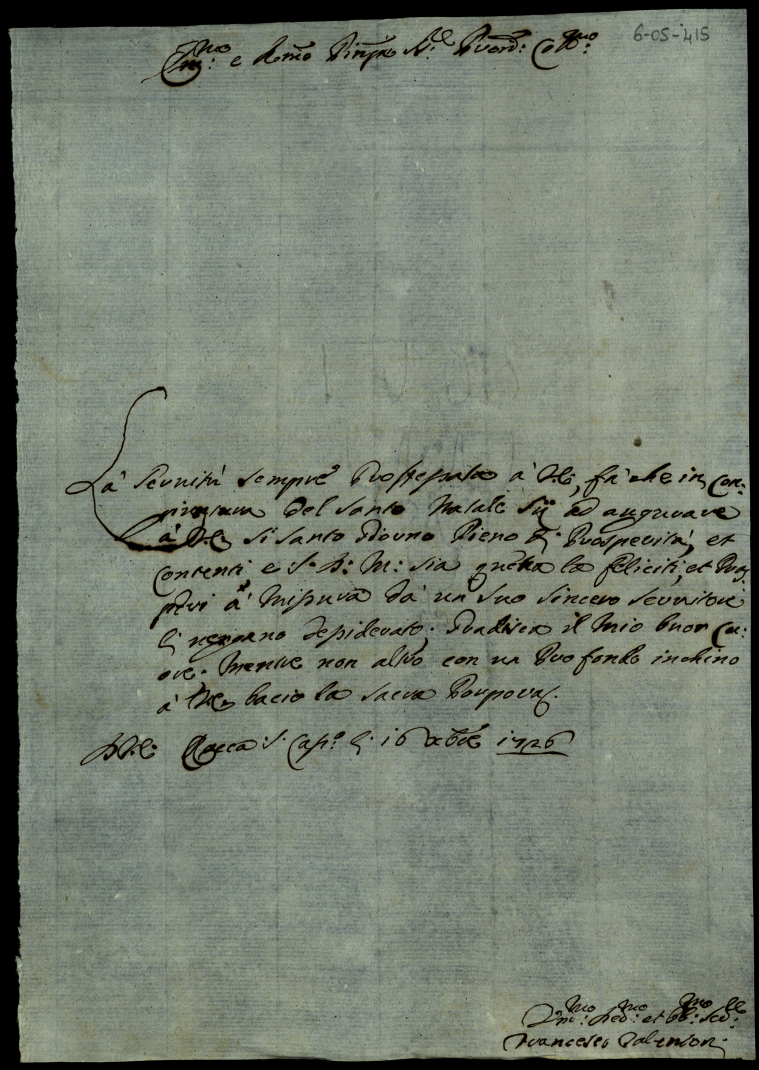 6-05-415
Em:mo e Rmo Sig: Pron: Col:mo
La Servitù sempre professata à V.E., fà che in con:
giuntura del Santo Natale sij ad augurare
à V.E. si Santo Giorno Pieno di Prosperità, et
contenti e S. D: M: sia quella la feliciti, et
à misura dà un Suo sincero Servitore
desiderato; Gradisca il Mio buon Cu:
ore. Mentre non altro con un Profondo inchino
à V.E. bacio la Sacra Porpora.
D.V.E. Rocca S. Casc.o li 16 Xbre 1726
Um:mo Dev:mo et Obb:mo Ser:
Francesco